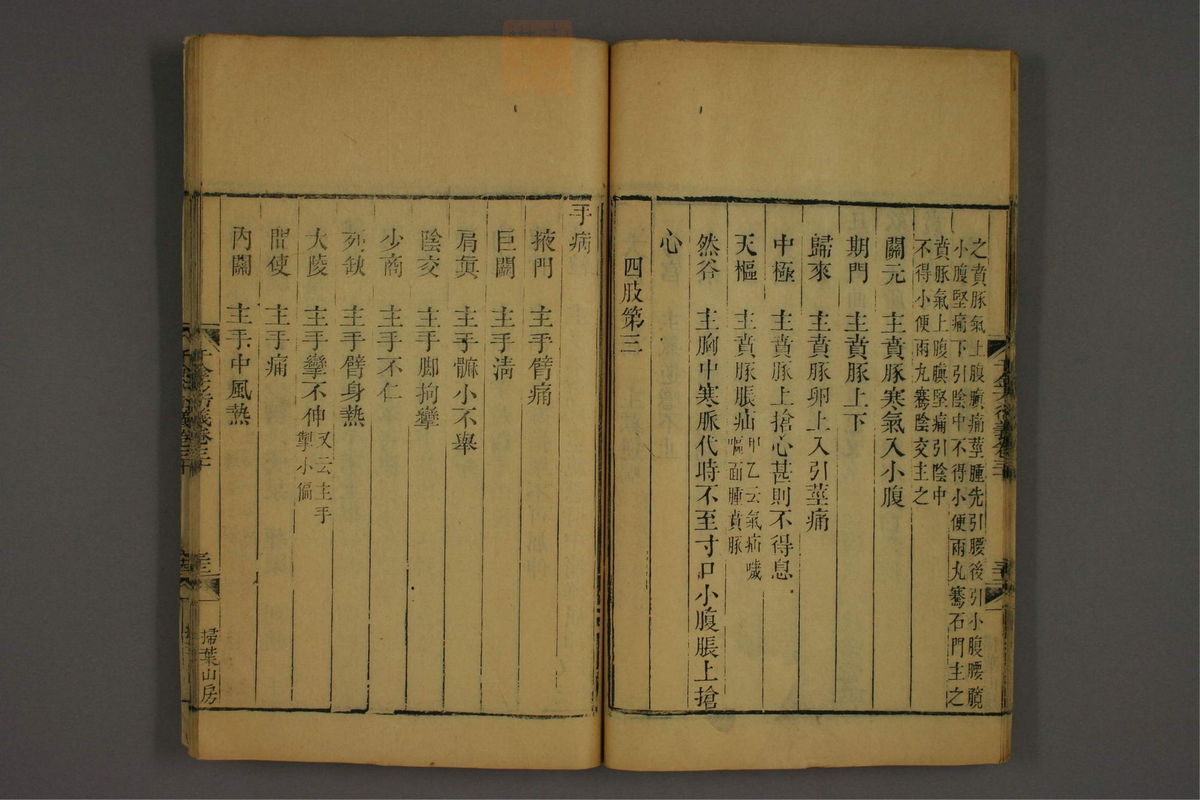 之賁豚氣上腹䐜痛莖腫先引腰後引小腹腰髖
小腹堅痛下引陰中不得小便兩丸騫石門主之
賁豚氣上腹䐜堅痛引陰中
不得小便兩丸騫陰交主之
關元　主賁豚寒氣入小腹
期門　主賁豚上下
歸來　主賁豚卵上入引莖痛
中極　主賁豚上搶心甚則不得息
天樞　主賁豚脹疝甲乙云氣疝噦
嘔面腫賁豚
然谷　主胸中寒脈代時不至寸口小腹脹上搶
心
四肢第三
手病
掖門　主手臂痛
巨闕　主手清
肩貞　主手髍小不舉
陰交　主手脚拘攣
少商　主手不仁
列缺　主手臂身熱
大陵　主手攣不伸又云主手
掣小偏
間使　主手痛
內關　主手中風熱
千金方衍義卷三十
掃葉山房